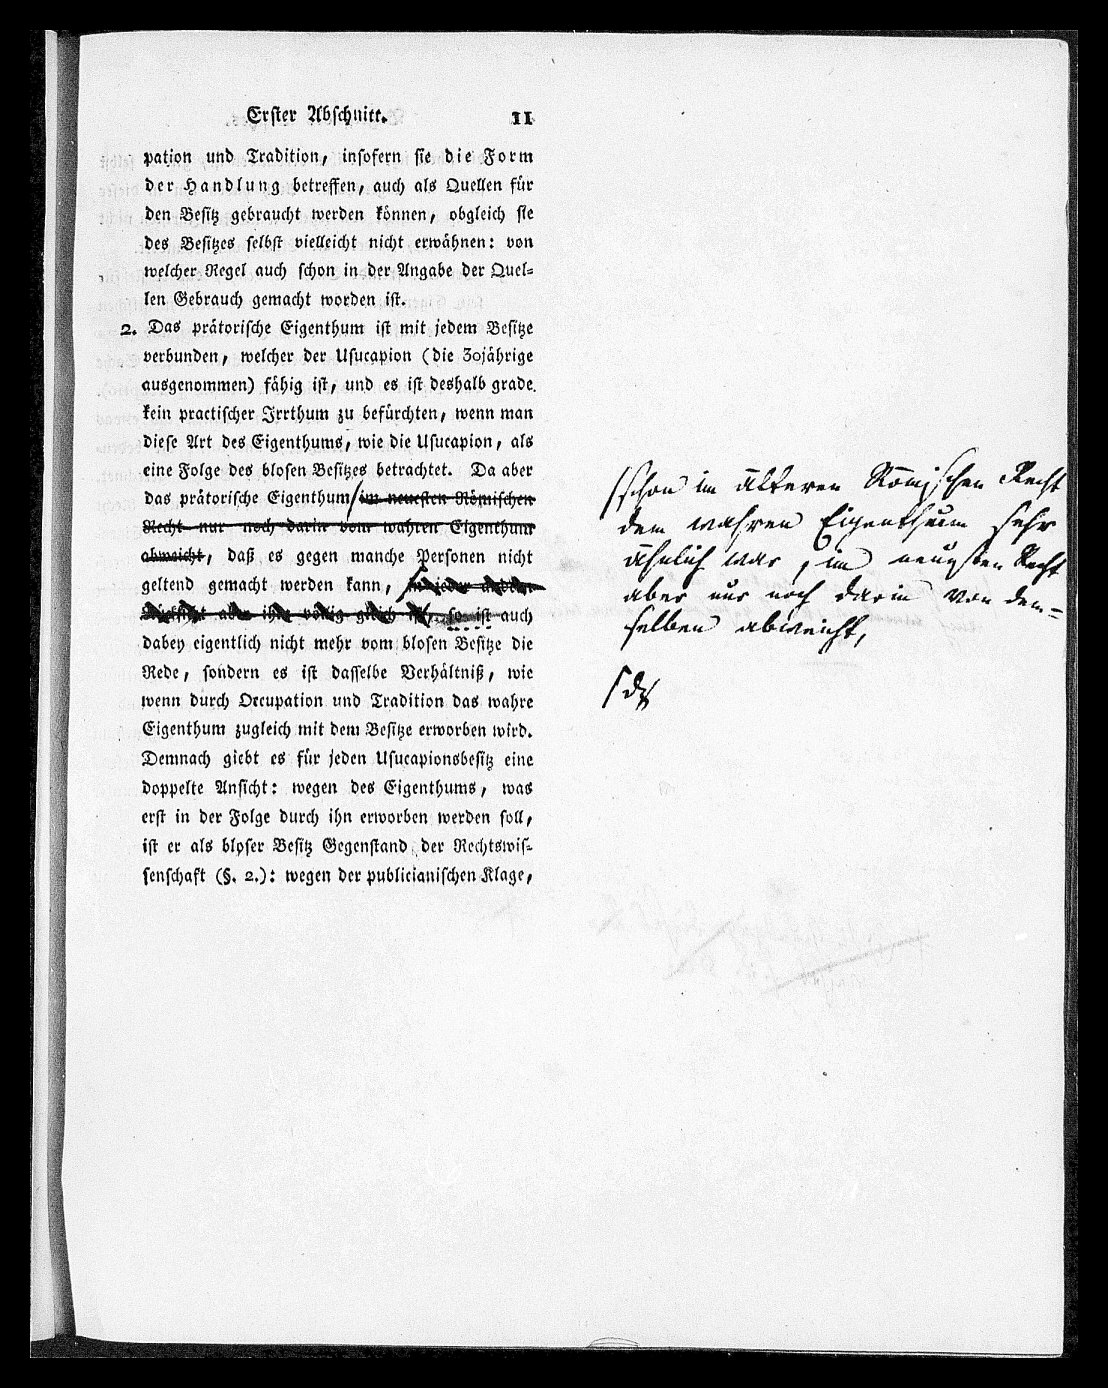 Erster Abschnitt. 11
pation und Tradition, insofern sie die Form
der Handlung betreffen, auch als Quellen für
den Besitz gebraucht werden können, obgleich sie
des Besitzes selbst vielleicht nicht erwähnen: von
welcher Regel auch schon in der Angabe der Quel-
len Gebrauch gemacht worden ist.
2. Das prätorische Eigenthum ist mit jedem Besitze
verbunden, welcher der Usucapion (die 30jährige
ausgenommen) fähig ist, und es ist deshalb grade
kein practischer Irrthum zu befürchten, wenn man
diese Art des Eigenthums, wie die Usucapion, als
eine Folge des blosen Besitzes betrachtet. Da aber
das prätorische Eigenthum im neuesten Römischen
Recht nur noch darin vom wahren Eigenthum
abweicht, daß es gegen manche Personen nicht
geltend gemacht werden kann, in jeder andern
Rücksicht aber ihm völlig gleich ist, so ist auch
dabey eigentlich nicht mehr vom blosen Besitze die
Rede, sondern es ist dasselbe Verhältniß, wie
wenn durch Occupation und Tradition das wahre
Eigenthum zugleich mit dem Besitze erworben wird.
Demnach giebt es für jeden Usucapionsbesitz eine
doppelte Ansicht: wegen des Eigenthums, was
erst in der Folge durch ihn erworben werden soll,
ist er als bloser Besitz Gegenstand der Rechtswis-
senschaft (§. 2.): wegen der publicianischen Klage,
schon im älteren Römischen Recht
dem wahren Eigenthum sehr
ähnlich war, im neusten Recht
aber nur noch darin von dem-
selben abweicht,